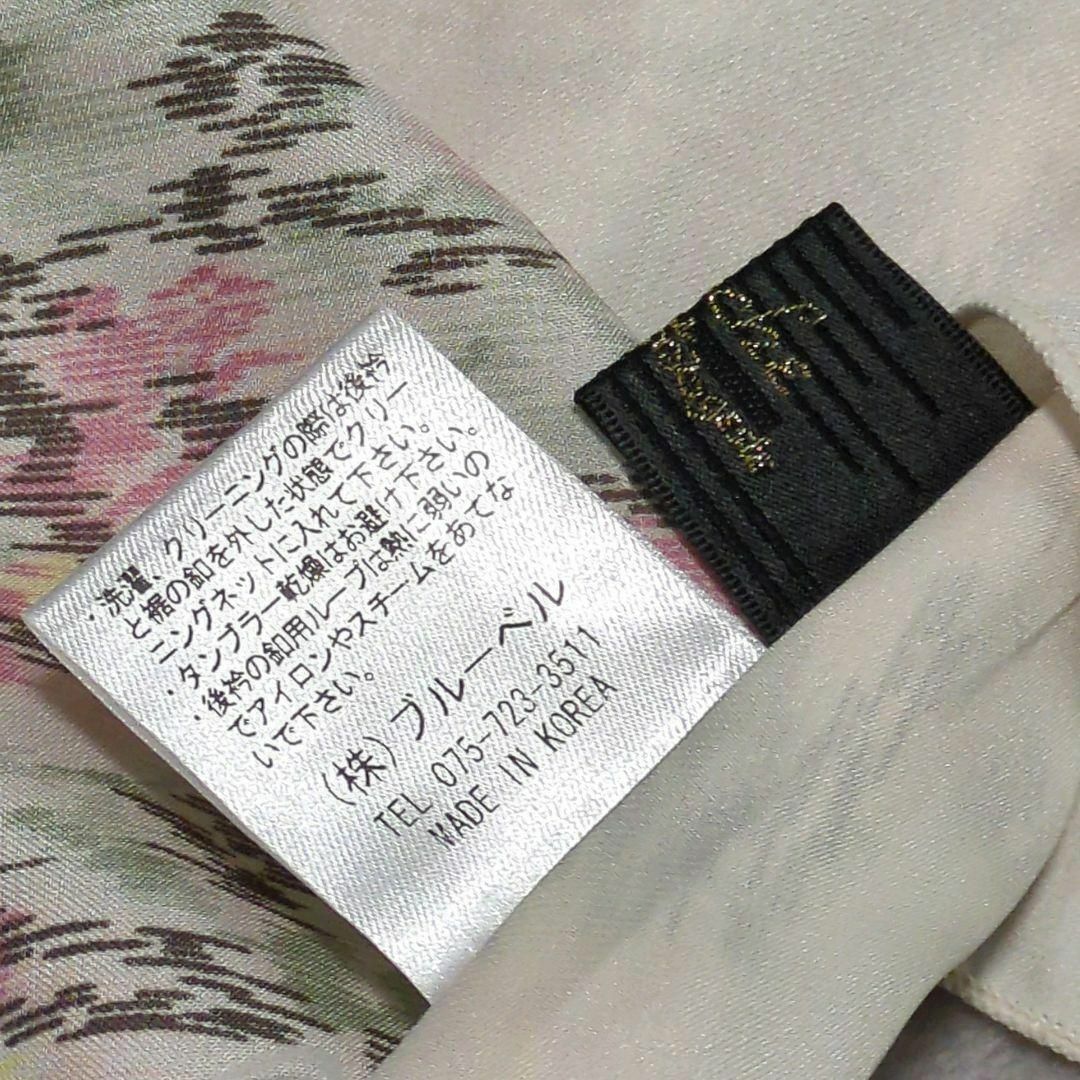 ・洗濯、クリーニングの際は後衿
と裾の釦を外した状態でクリー
ニングネットに入れて下さい。
・タンブラー乾燥はお避け下さい。
・後衿の釦用ループは熱に弱いの
でアイロンやスチームをあてな
いで下さい。
(株)ブルーベル
TEL 075-723-3511
MADE IN KOREA